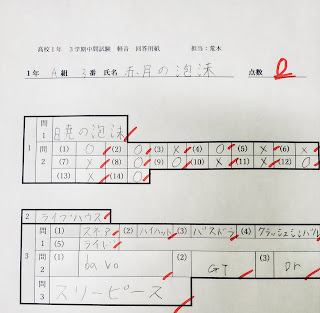 高校1年 3学期中間試験 軽音 回答用紙 担当：荒木
1年 A 組 3 番 氏名 赤月の泡沫 点数 0
1 問1 の泡沫
問2 (1) O (2) O (3) X (4) O (5) X (6) X
(7) X (8) O (9) O (10) X (11) X (12) O
(13) X (14) O
2 ライブハウス
3 問1 (1) スネア (2) ハイハット (3) バスドラ (4) クラッシュシンバル
(5) ライド
問2 (1) ba vo (2) GT (3) Dr
問3 スリーピース